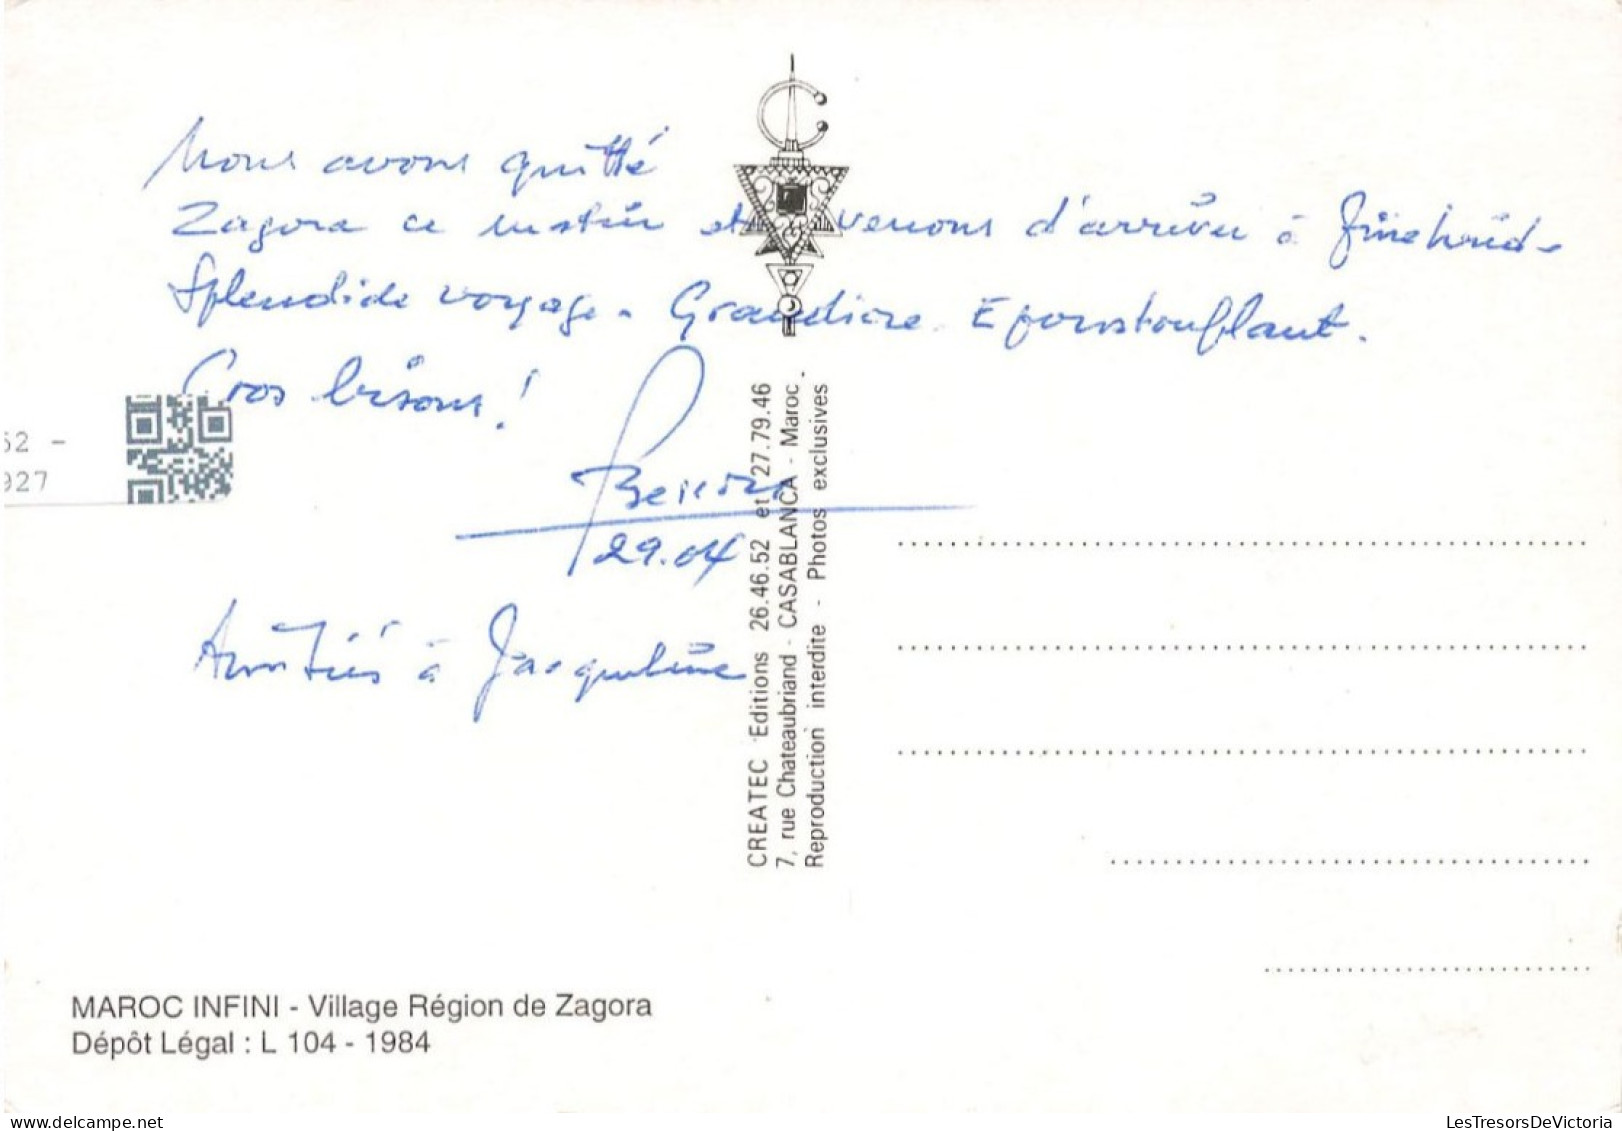 Nous avons quitté
Zagora ce matin et venons d'arriver à
Splendide voyage. Grandiose. Epoustouflant.
Gros bisous!
29.04
Amitiés à Jacqueline
52 -
927
CREATEC Editions 26.46.52 et 27.79.46
7, rue Chateaubriand - CASABLANCA - Maroc.
Reproduction interdite - Photos exclusives
MAROC INFINI - Village Région de Zagora
Dépôt Légal : L 104 - 1984
LesTresorsDeVictoria